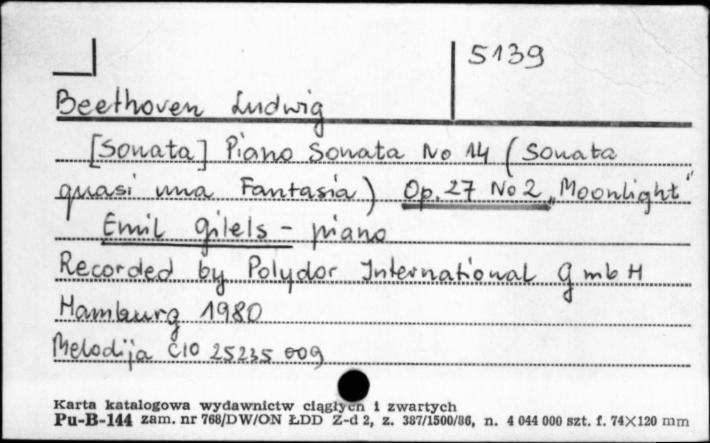 5139
Beethoven Ludwig
[Sonata] Piano Sonata No 14 (Sonata
quasi una Fantasia) Op. 27 No 2 „Moonlight"
Emil Gilels - piano
Recorded by Polydor International GmbH
Hamburg 1980
Melodija C10 25235 009
Karta katalogowa wydawnictw ciągłych i zwartych
Pu-B-144 zam. nr 768/DW/ON ŁDD Z-d 2, z. 387/1500/86, n. 4 044 000 szt. f. 74×120 mm